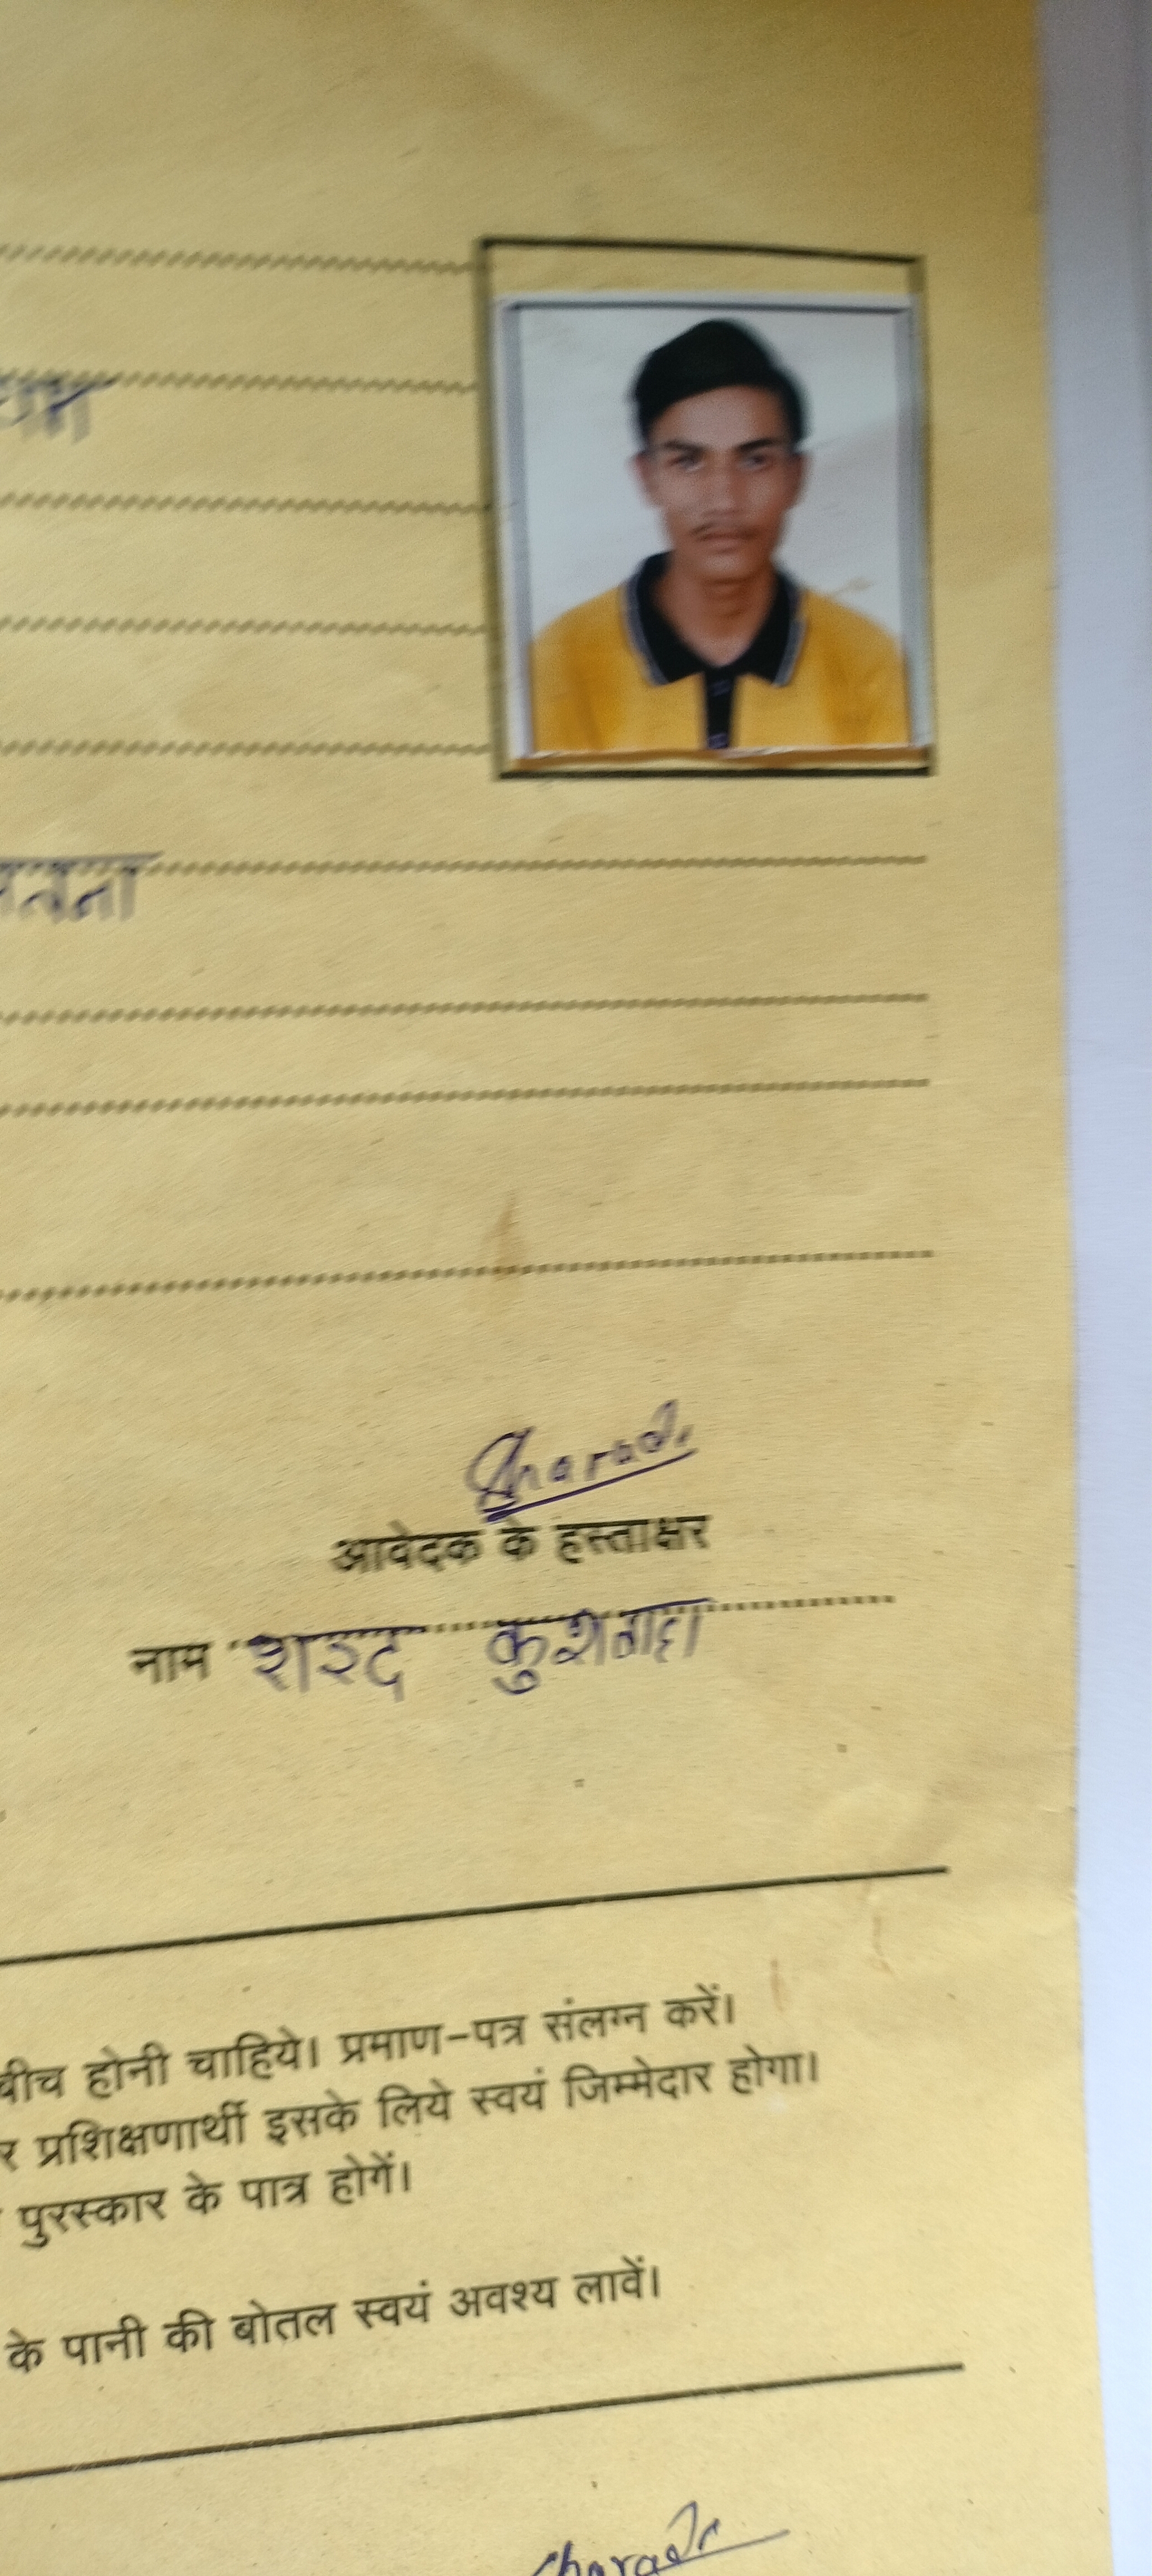 Sharad
आवेदक के हस्ताक्षर
नाम शरद कुशवाहा
बीच होनी चाहिये। प्रमाण-पत्र संलग्न करें।
र प्रशिक्षणार्थी इसके लिये स्वयं जिम्मेदार होगा।
पुरस्कार के पात्र होगें।
के पानी की बोतल स्वयं अवश्य लावें।
Sharad